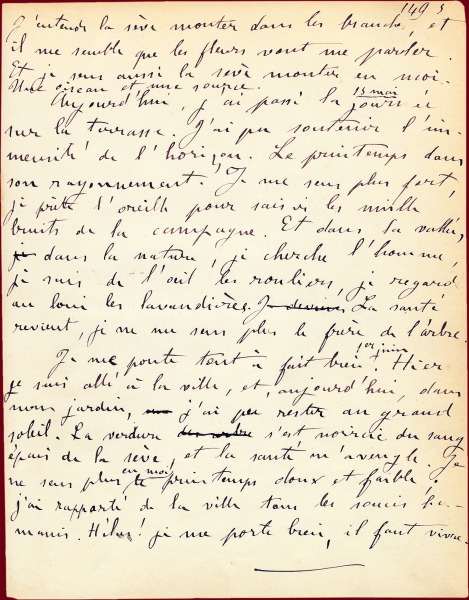 149 5
J'entends la sève monter dans les branches, et
il me semble que les fleurs vont me parler.
Et je sens aussi la sève monter en moi.
Une oiseau et une source.
15 mai
Aujourd'hui, j'ai passé la journée
sur la terrasse. J'ai pu soutenir l'im-
mensité de l'horizon. Le printemps dans
son rayonnement. Je me sens plus fort,
je prête l'oreille pour saisir les mille
bruits de la campagne. Et dans la vallée,
je dans la nature, je cherche l'homme,
je suis de l'œil les rouliers, je regarde
au loin les lavandières. Je devine La santé
revient, je ne me sens plus le frère de l'arbre.
1er juin
Je me porte tout à fait bien. Hier
je suis allé à la ville, et, aujourd'hui, dans
mon jardin, j'ai pu rester au grand
soleil. La verdure s'est noircie du sang
épais de la sève, et la santé m'aveugle. Je
ne sens plus en moi le printemps doux et faible.
j'ai rapporté de la ville tous les soucis hu-
mains. Hélas! je me porte bien, il faut vivre.